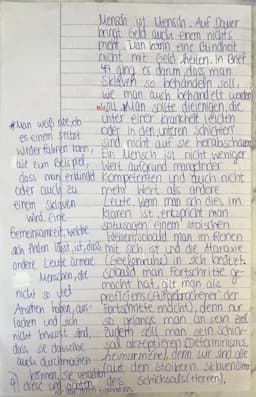 Mensch ist Mensch. Auf Dauer
bringt Geld auch einem nichts
mehr. Man kann eine Blindheit
nicht mit Geld heilen. In Brief
47 ging es darum, dass man
Sklaven so behandeln soll,
wie man auch behandelt werden
will. Man sollte diejenigen, die
unter einer Krankheit leiden
oder in den unteren Schichten
sind nicht auf sie herabschauen
Ein Mensch ist nicht weniger
Wert aufgrund mangelnder
Kompetenten und auch nicht
mehr Wert als andere
Leute. Wenn man sich dies im
klaren ist, entspricht man
sozusagen einem stoischen
Weisen, sobald man im Reinen
mit sich ist und die Ataraxie
(Seelenruhe) in sich besitzt.
Sobald man Fortschritte ge-
macht hat, gilt man als
proficiens (Aufgebrochener, der
Fortschritte macht), denn nur
so gelangt man an sein Ziel
Zudem soll man sein Schick-
sal akzeptieren (Determinismus,
heimarmene), denn wir sind alle
laut den Stoikern Sklaven
des Schicksals (Herren),
*Man weiß nie, ob
es einem selbst
wiederfahren kann,
wie zum Beispiel,
dass man erblindet
oder auch zu
einem Sklaven
wird. Eine
Gemeinsamkeit, welche
sich finden lässt, ist, dass
andere Leute ärmere
Menschen, die
nicht so viel
Ansehen haben, aus-
lachen und sich
nicht bewusst sind,
dass sie dasselbe
auch durchmachen
können, sie verachten
diese und achten